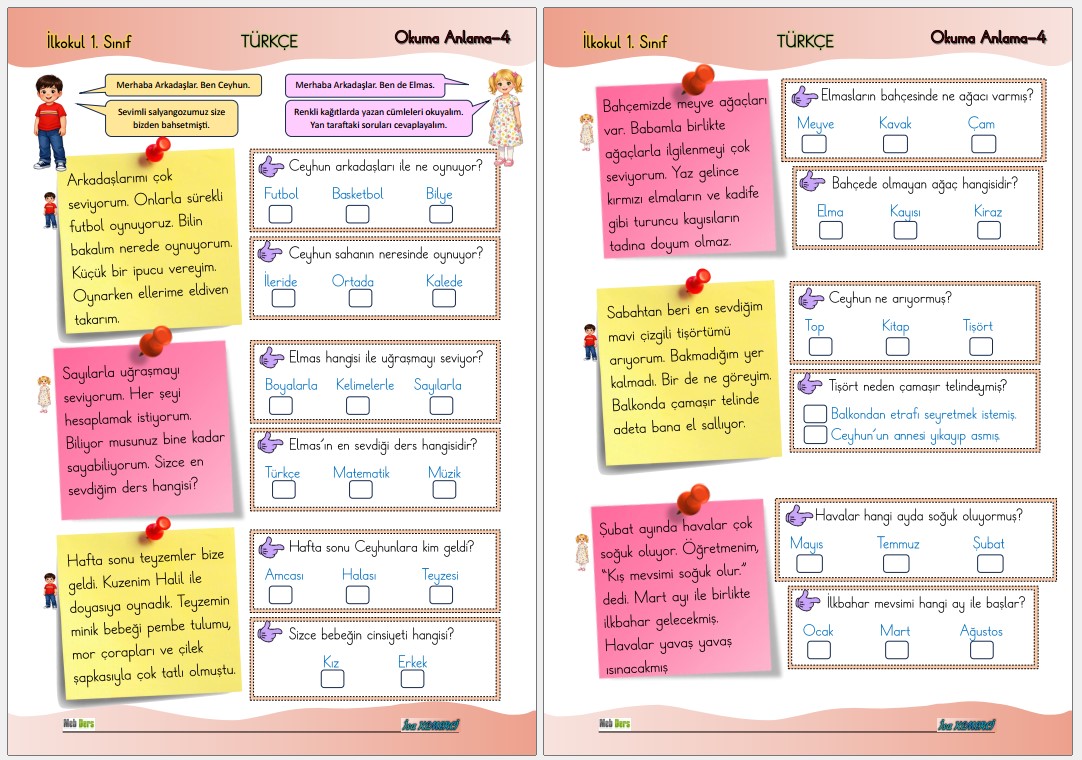 İlkokul 1. Sınıf
TÜRKÇE
Okuma Anlama–4
Merhaba Arkadaşlar. Ben Ceyhun.
Sevimli salyangozumuz size
bizden bahsetmişti.
Merhaba Arkadaşlar. Ben de Elmas.
Renkli kağıtlarda yazan cümleleri okuyalım.
Yan taraftaki soruları cevaplayalım.
Arkadaşlarımı çok
seviyorum. Onlarla sürekli
futbol oynuyoruz. Bilin
bakalım nerede oynuyorum.
Küçük bir ipucu vereyim.
Oynarken ellerime eldiven
takarım.
Ceyhun arkadaşları ile ne oynuyor?
Futbol Basketbol Bilye
Ceyhun sahanın neresinde oynuyor?
İleride Ortada Kalede
Sayılarla uğraşmayı
seviyorum. Her şeyi
hesaplamak istiyorum.
Biliyor musunuz bine kadar
sayabiliyorum. Sizce en
sevdiğim ders hangisi?
Elmas hangisi ile uğraşmayı seviyor?
Boyalarla Kelimelerle Sayılarla
Elmas'ın en sevdiği ders hangisidir?
Türkçe Matematik Müzik
Hafta sonu teyzemler bize
geldi. Kuzenim Halil ile
doyasıya oynadık. Teyzemin
minik bebeği pembe tulumu,
mor çorapları ve çilek
şapkasıyla çok tatlı olmuştu.
Hafta sonu Ceyhunlara kim geldi?
Amcası Halası Teyzesi
Sizce bebeğin cinsiyeti hangisi?
Kız Erkek
Meb Ders
İlkokul 1. Sınıf
TÜRKÇE
Okuma Anlama–4
Bahçemizde meyve ağaçları
var. Babamla birlikte
ağaçlarla ilgilenmeyi çok
seviyorum. Yaz gelince
kırmızı elmaların ve kadife
gibi turuncu kayısıların
tadına doyum olmaz.
Elmasların bahçesinde ne ağacı varmış?
Meyve Kavak Çam
Bahçede olmayan ağaç hangisidir?
Elma Kayısı Kiraz
Sabahtan beri en sevdiğim
mavi çizgili tişörtümü
arıyorum. Bakmadığım yer
kalmadı. Bir de ne göreyim.
Balkonda çamaşır telinde
adeta bana el sallıyor.
Ceyhun ne arıyormuş?
Top Kitap Tişört
Tişört neden çamaşır telindeymiş?
Balkondan etrafı seyretmek istemiş.
Ceyhun'un annesi yıkayıp asmış.
Şubat ayında havalar çok
soğuk oluyor. Öğretmenim,
“Kış mevsimi soğuk olur.”
dedi. Mart ayı ile birlikte
ilkbahar gelecekmiş.
Havalar yavaş yavaş
ısınacakmış
Havalar hangi ayda soğuk oluyormuş?
Mayıs Temmuz Şubat
İlkbahar mevsimi hangi ay ile başlar?
Ocak Mart Ağustos
Meb Ders